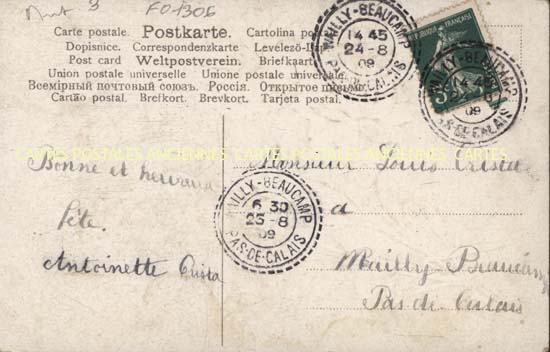 3 FO-1306
Carte postale. Postkarte. Cartolina po
Dopisnice. Correspondenzkarte Levelező-La
Post card Weltpostverein. Briefkaart
Union postale universelle Unione postale universale.
Всемірный почтовый союзъ. Россія. Открытое письмо.
Cartão postal. Brefkort. Brevkort. Tarjeta postal.
MAILLY-BEAUCAMP
14 45
24-8
09
PAS-DE-CALAIS
RÉPUBLIQUE FRANÇAISE
MAILLY-BEAUCAMP
09
PAS-DE-CALAIS
CARTES POSTALES ANCIENNES CARTES POSTALES ANCIENNES CARTES
Bonne et heureuse
fête.
Antoinette
MAILLY-BEAUCAMP
6 30
25-8
09
PAS-DE-CALAIS
Monsieur Louis
a
Mailly-Beaucamp
Pas de Calais